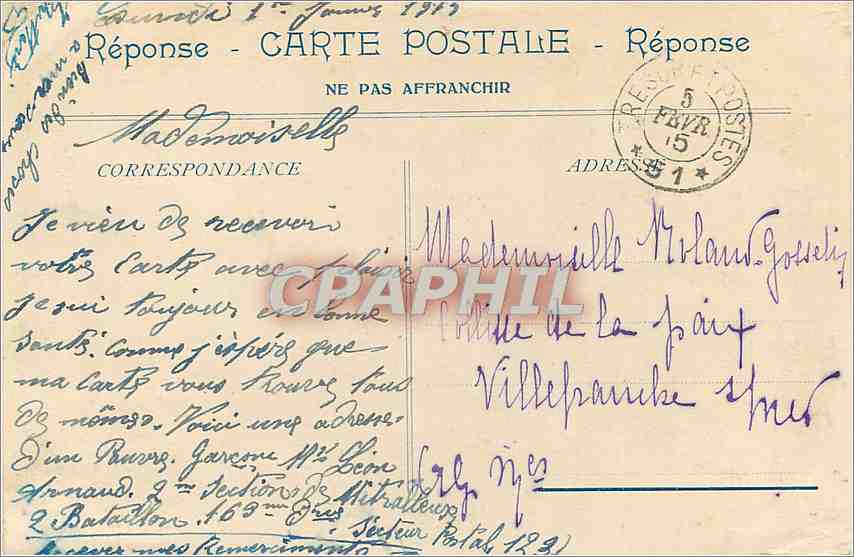 1er 1915
Réponse - CARTE POSTALE - Réponse
NE PAS AFFRANCHIR
TRESOR ET POSTES
5
FEVR
15
* 51 *
Mademoiselle
CORRESPONDANCE
ADRESSE
Je vien de recevoir
votre Carte avec plaisir
Je sui toujour en bonne
santé. Comme j'éspére que
ma Carte vous trouve tous
de mêmes. Voici une adresse
d'un Pauvre. Garçone Mr Léon
Arnaud. 2me Section de Mitrailleux
2 Bataillon 163me Secteur Postal 123
Recever mes Remerciments
Mademoiselle Roland-Gosselin
Colline de la paix
Villefranche s/mer
Alp. Mes
CPAPHIL